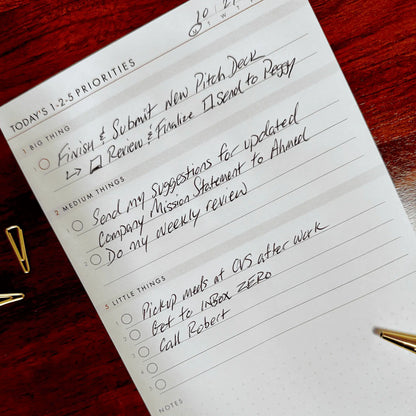 10/2
M T W T
TODAY'S 1-2-5 PRIORITIES
1 BIG THING
1 Finish & Submit New Pitch Deck
↳ Review & Finalize Send to Peggy
2 MEDIUM THINGS
1 Send my suggestions for updated
Company Mission Statement to Ahmed
2 Do my weekly review
5 LITTLE THINGS
1 Pickup meds at CVS after work
2 Get to INBOX ZERO
3 Call Robert
4
5
NOTES